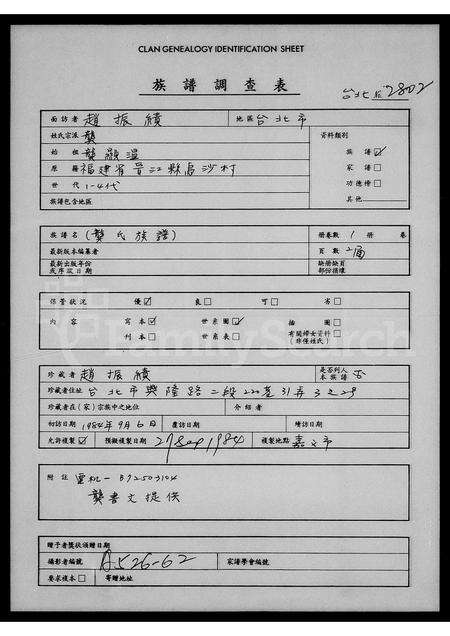 CLAN GENEALOGY IDENTIFICATION SHEET
族譜調查表
台北 2802
面訪者 趙振績 地區 台北市
姓氏宗派 龔 資料類別
始祖 龔顯溫 族譜 ☑
原籍 福建省晋江縣 沙村 家譜 □
世代 1-4代 功德榜 □
族譜包含地區 其他
族譜名 (龔氏族譜) 冊卷數 1 冊 卷
最新版本編纂者 頁數 2面
最新出版年份或序跋日期 缺冊缺頁部份損壞
保管狀況 優 ☑ 良 □ 可 □ 劣 □
內容 寫本 ☑ 世系圖 ☑ 插圖 □
刊本 □ 世系表 □ 有關婦女資料(非僅姓氏) □
FamilySearch
珍藏者 趙振績 是否列入本族譜 否
珍藏者住址 台北市興隆路二段220巷31弄3之2号
珍藏者在(家)宗族中之地位 介紹者
初訪日期 1984年9月6日 覆訪日期 續訪日期
允許複製 ☑ 預擬複製日期 27 Sep 1984 複製地點 嘉文市
附註 電机一 B92503104
龔書文提供
贈予者獎狀頒贈日期
攝影者編號 A526-62 家譜學會編號
要求複本 □ 寄贈地址